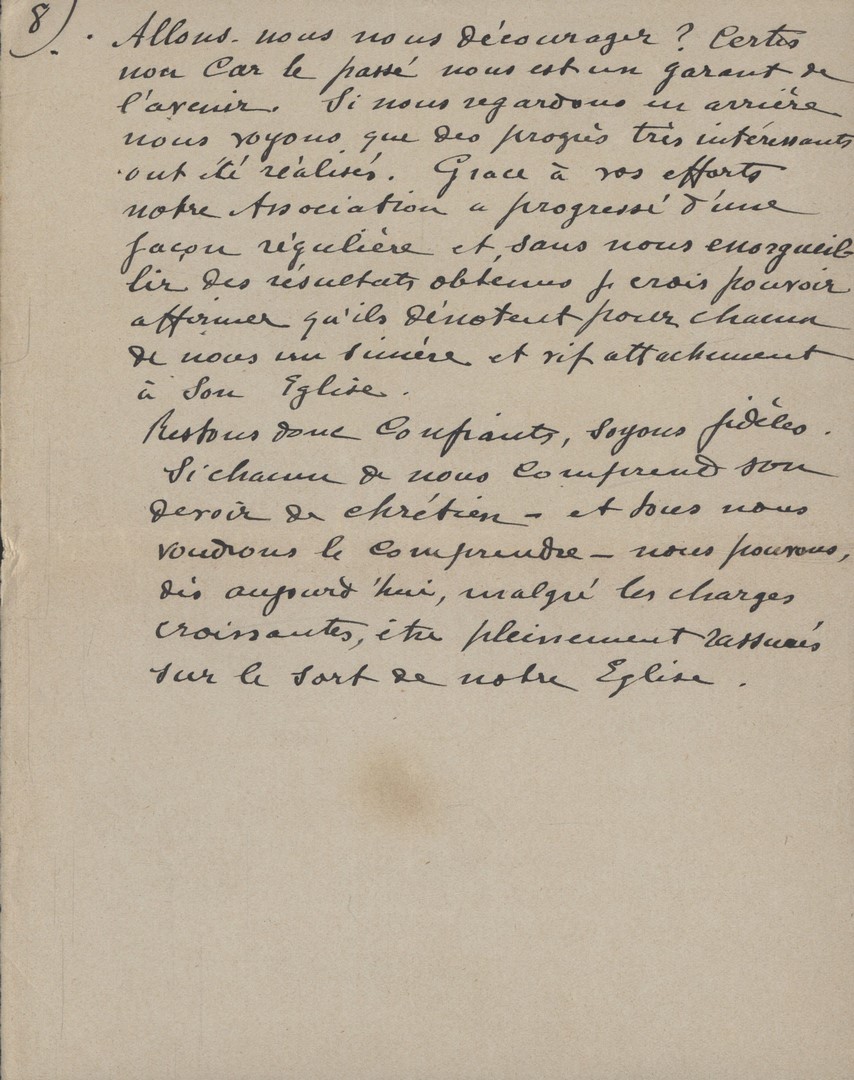 8)
Allons-nous nous décourager ? Certes
non Car le passé nous est un garant de
l'avenir. Si nous regardons en arrière
nous voyons que des progrès très intéressants
ont été réalisés. Grace à vos efforts
notre Association a progressé d'une
façon régulière et, sans nous enorgueil-
lir des résultats obtenus je crois pouvoir
affirmer qu'ils dénotent pour chacun
de nous un sincère et vif attachement
à son Eglise.
Restons donc Confiants, soyons fidèles.
Si chacun de nous comprend son
devoir de chrétien - et tous nous
voudrons le comprendre - nous pouvons,
dès aujourd'hui, malgré les charges
croissantes, être pleinement rassurés
sur le sort de notre Eglise.